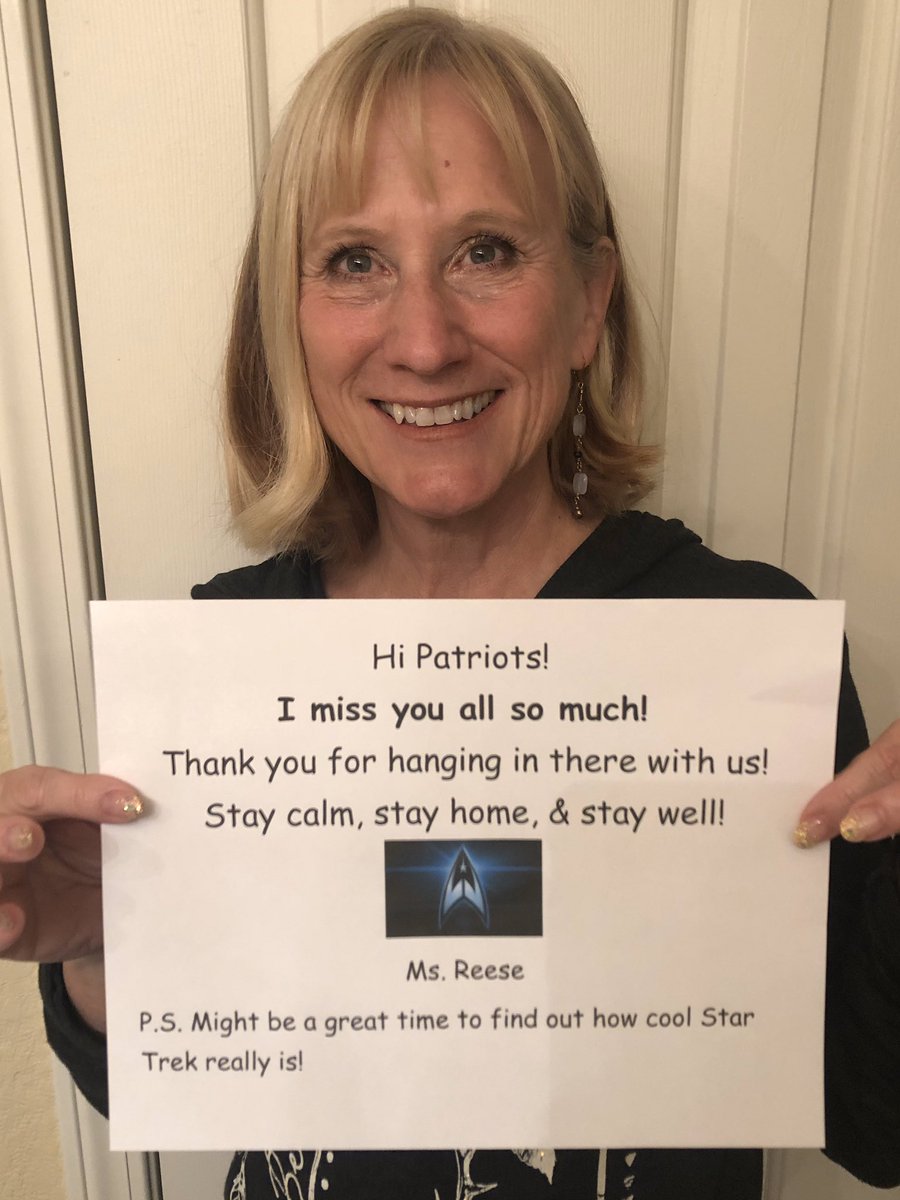 Hi Patriots!
I miss you all so much!
Thank you for hanging in there with us!
Stay calm, stay home, & stay well!
Ms. Reese
P.S. Might be a great time to find out how cool Star
Trek really is!